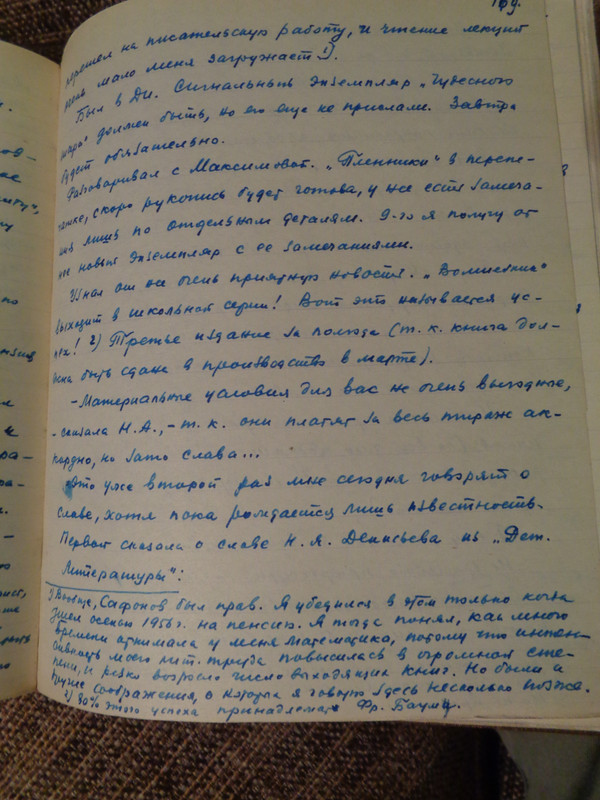 169.
перешел на писательскую работу, и чтение лекций
меня мало меня загружает 1).
Был в ДИ. Сигнальный экземпляр „Чудесного
шара" должен быть, но его еще не прислали. Завтра
будет обязательно.
Разговаривал с Максимовой. „Пленники" в перепе-
чатке, скоро рукопись будет готова, у нее есть замеча-
ния лишь по отдельным деталям. 9-го я получу от
нее новый экземпляр с ее замечаниями.
Узнал от нее очень приятную новость. „Волшебник"
выходит в школьной серии! Вот это называется ус-
пех! 2) Третье издание за полгода (т. к. книга дол-
жна быть сдана в производство в марте).
- Материальные условия для вас не очень выгодные,
- сказала Н.А., - т. к. они платят за весь тираж ак-
кордно, но зато слава...
Это уже второй раз мне сегодня говорят о
славе, хотя пока рождается лишь известность.
Первой сказала о славе Н. Я. Денисьева из „Дет.
Литературы":
1) Вообще, Сафонов был прав. Я убедился в этом только когда
ушел осенью 1956 г. на пенсию. Я тогда понял, как много
времени отнимала у меня математика, потому что интен-
сивность моего лит. труда повысилась в огромной сте-
пени, и резко возросло число выходящих книг. Но были и
другие соображения, о которых я говорю здесь несколько позже.
2) 90% этого успеха принадлежат Фр. Бауму.